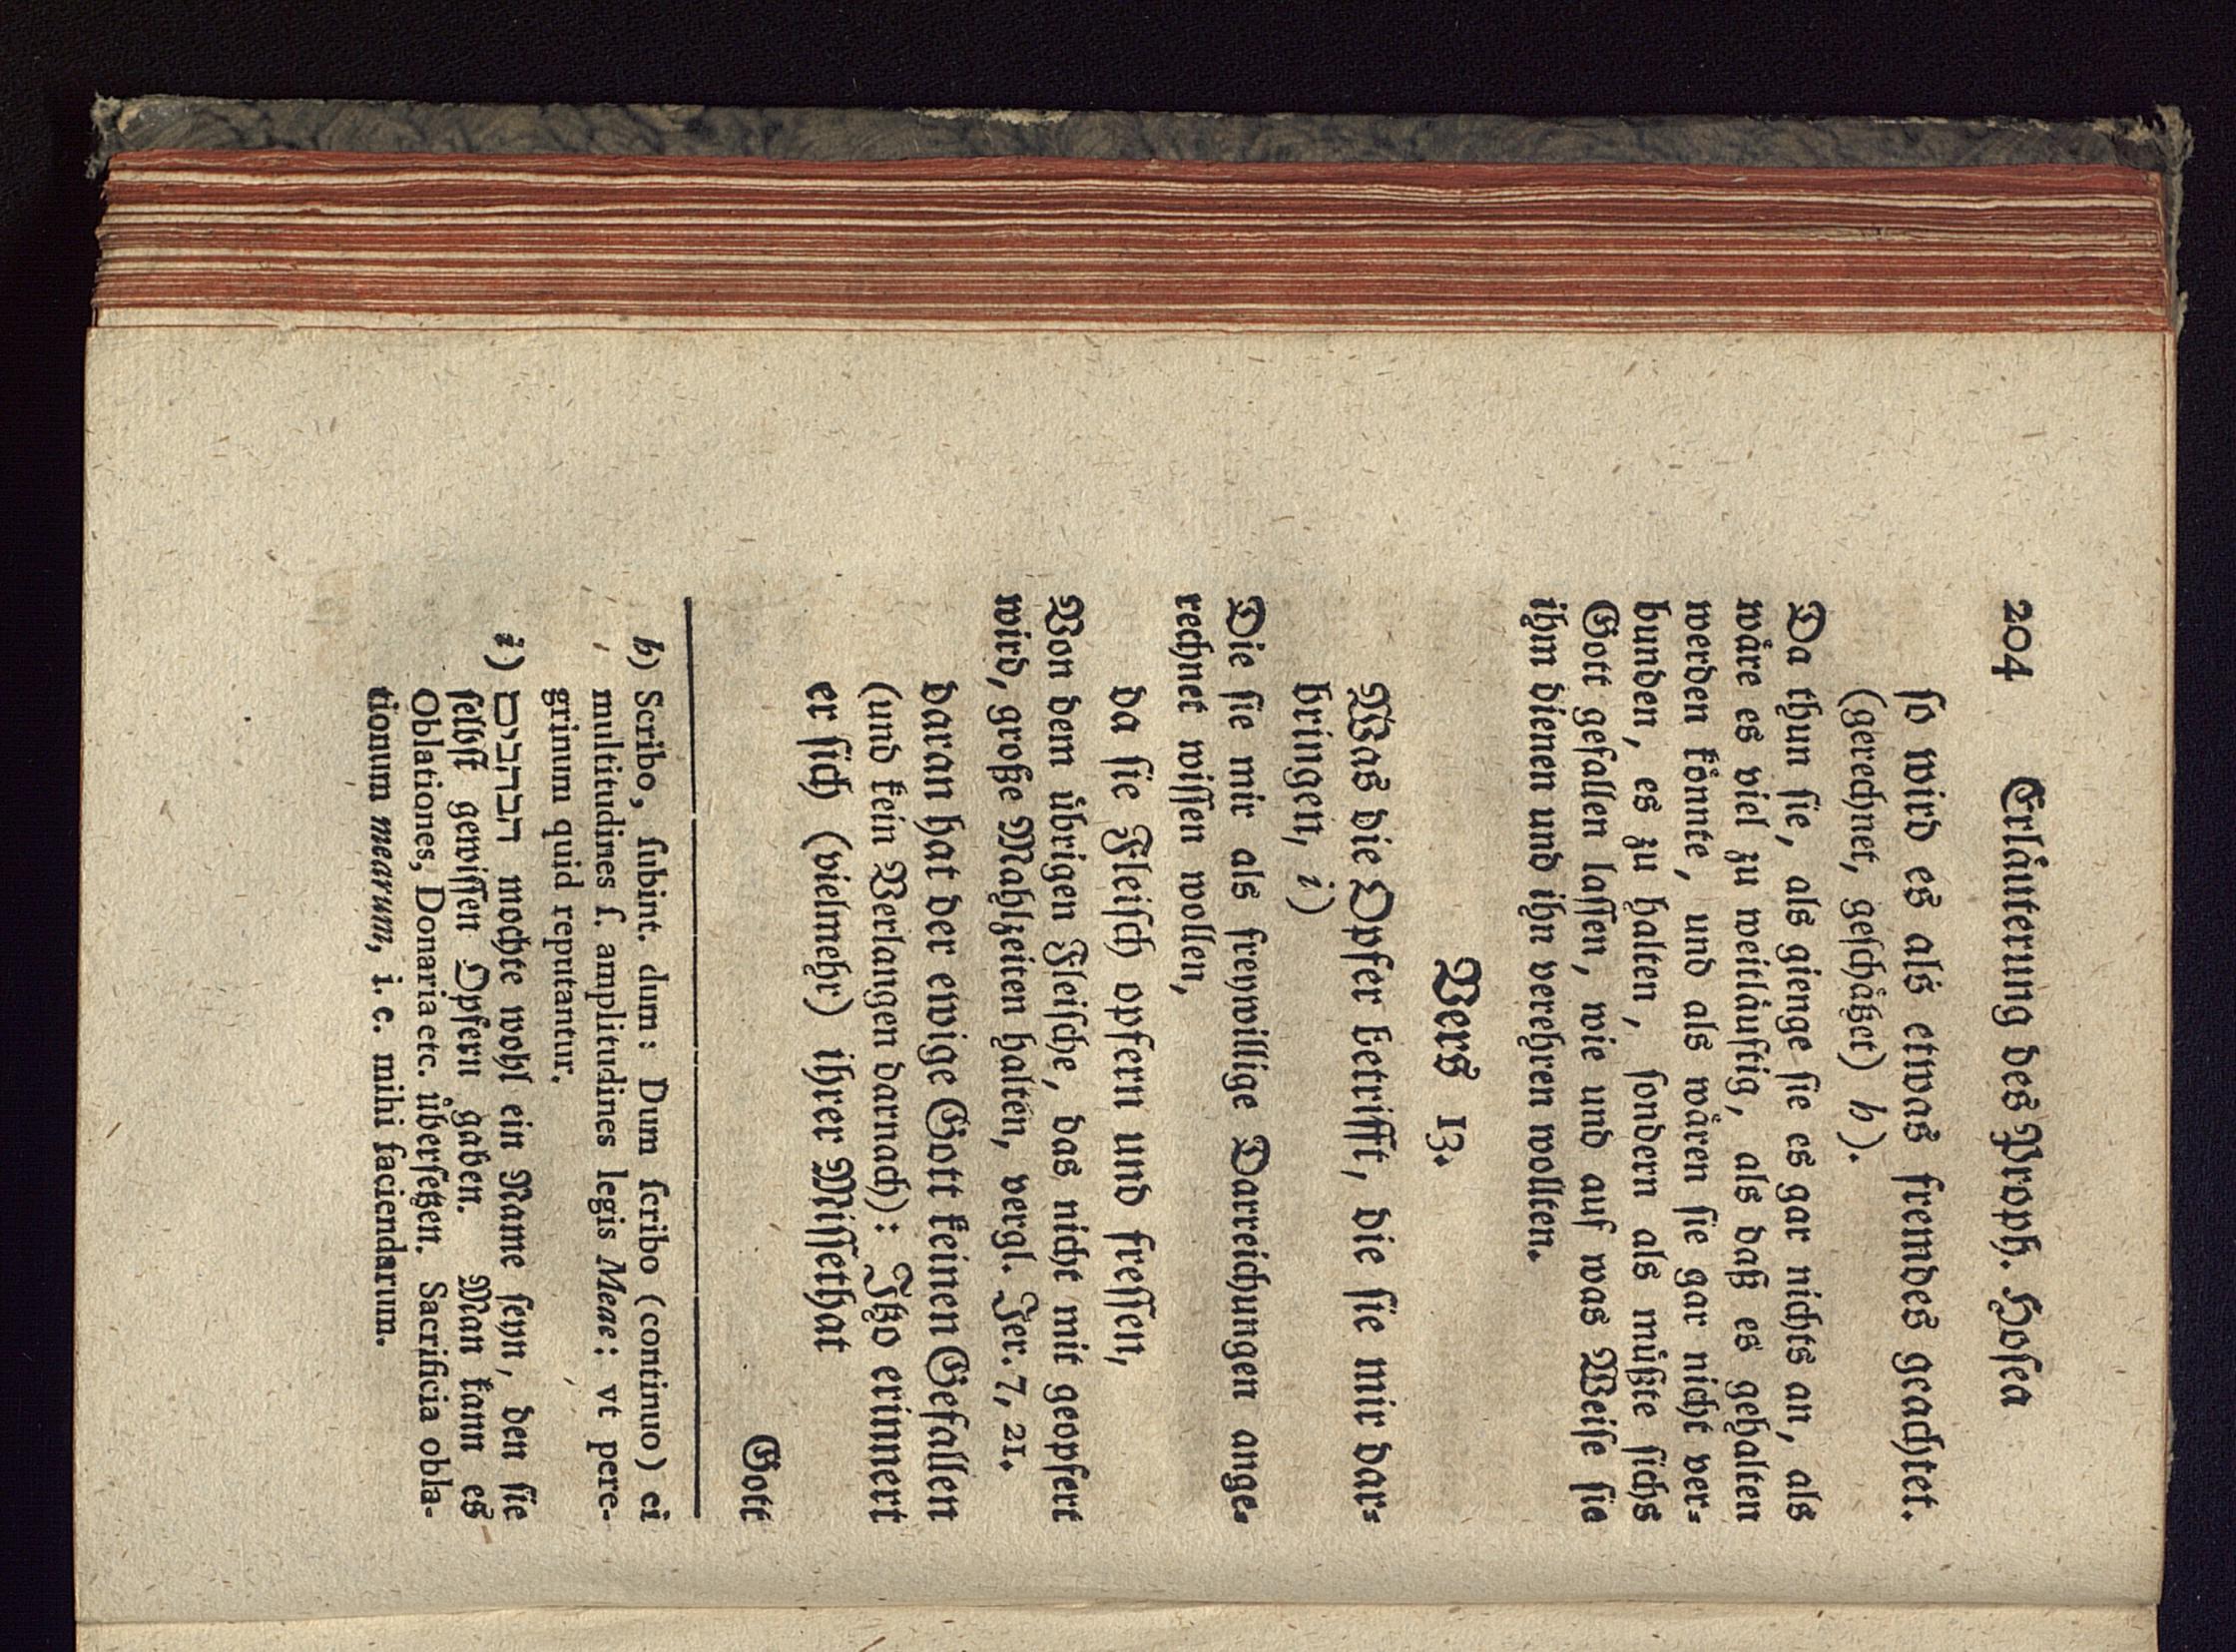 204 Erläuterung des Proph. Hosea
ſo wird es als etwas fremdes geachtet.
(gerechnet, geſchätzet) h).
Da thun ſie, als gienge ſie es gar nichts an, als
wäre es viel zu weitläuftig, als daß es gehalten
werden könnte, und als wären ſie gar nicht ver-
bunden, es zu halten, ſondern als müßte ſichs
Gott gefallen laſſen, wie und auf was Weiſe ſie
ihm dienen und ihn verehren wollten.
Vers 13.
Was die Opfer betrifft, die ſie mir dar-
bringen, i)
Die ſie mir als freywillige Darreichungen ange-
rechnet wiſſen wollen,
da ſie Fleiſch opfern und freſſen,
Von dem übrigen Fleiſche, das nicht mit geopfert
wird, große Mahlzeiten halten, vergl. Jer. 7, 21.
daran hat der ewige Gott keinen Gefallen
(und kein Verlangen darnach): Itzo erinnert
er ſich (vielmehr) ihrer Miſſethat
Gott
h) Scribo, ſubint. dum: Dum ſcribo (continuo) ei
multitudines ſ. amplitudines legis Meae: vt pere-
grinum quid reputantur.
i) הבהבים mochte wohl ein Name ſeyn, den ſie
ſelbſt gewiſſen Opfern gaben. Man kann es
Oblationes, Donaria etc. überſetzen. Sacrificia obla-
tionum mearum, i. e. mihi faciendarum.